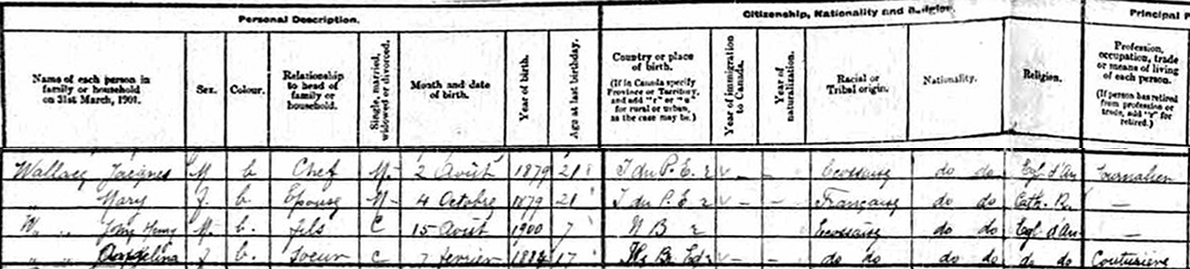 Personal Description. Citizenship, Nationality and Religion Principal P
Name of each person in family or household on 31st March, 1901. Sex. Colour. Relationship to head of family or household. Single, married, widowed or divorced. Month and date of birth. Year of birth. Age at last birthday. Country or place of birth. (If in Canada specify Province or Territory, and add "r" or "u" for rural or urban, as the case may be.) Year of immigration to Canada. Year of naturalization. Racial or Tribal origin. Nationality. Religion. Profession, occupation, trade or means of living of each person. (If person has retired from profession or trade, add "r" for retired.)
Wallace Jacques M b Chef M - 2 Août 1879 21 I du P. E. r - - Ecossaise do do Egl d'An Journalier
" Mary F. b. Epouse M - 4 Octobre 1879 21 I du P. E r - - Française do do Cath. R. —
W. " " Henry M. b. fils C 15 Août 1900 7 N B r Ecossaise do do Egl d'An —
" " F b. Soeur C 7 fevrier 17 r - - do do do do do do Couturiere